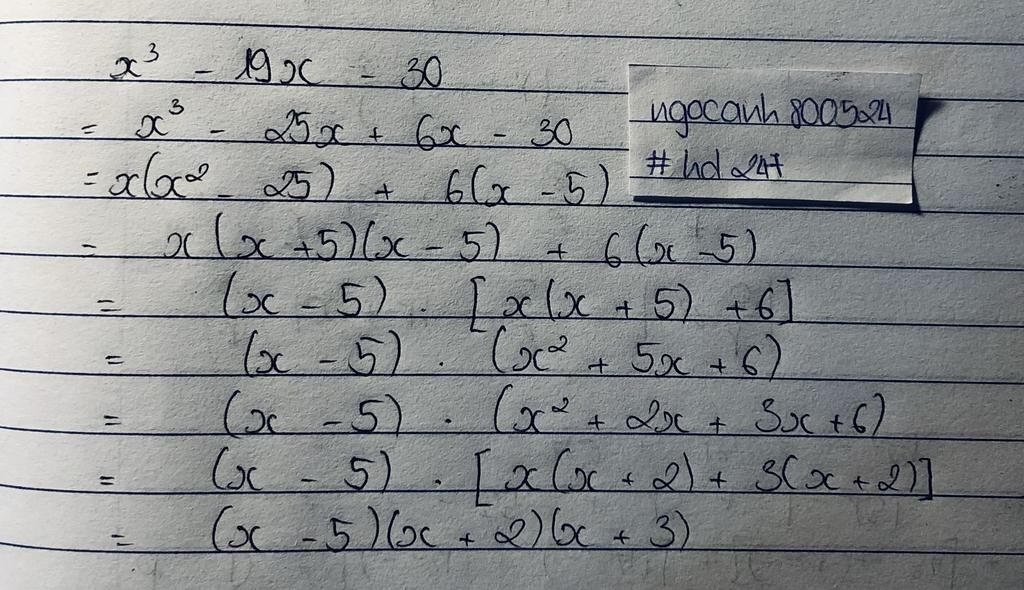 x³ - 19x - 30
= x³ - 25x + 6x - 30
= x(x² - 25) + 6(x - 5)
= x(x + 5)(x - 5) + 6(x - 5)
= (x - 5) . [x(x + 5) + 6]
= (x - 5) . (x² + 5x + 6)
= (x - 5) . (x² + 2x + 3x + 6)
= (x - 5) . [x(x + 2) + 3(x + 2)]
= (x - 5)(x + 2)(x + 3)
ngocanh800524
# hd 247